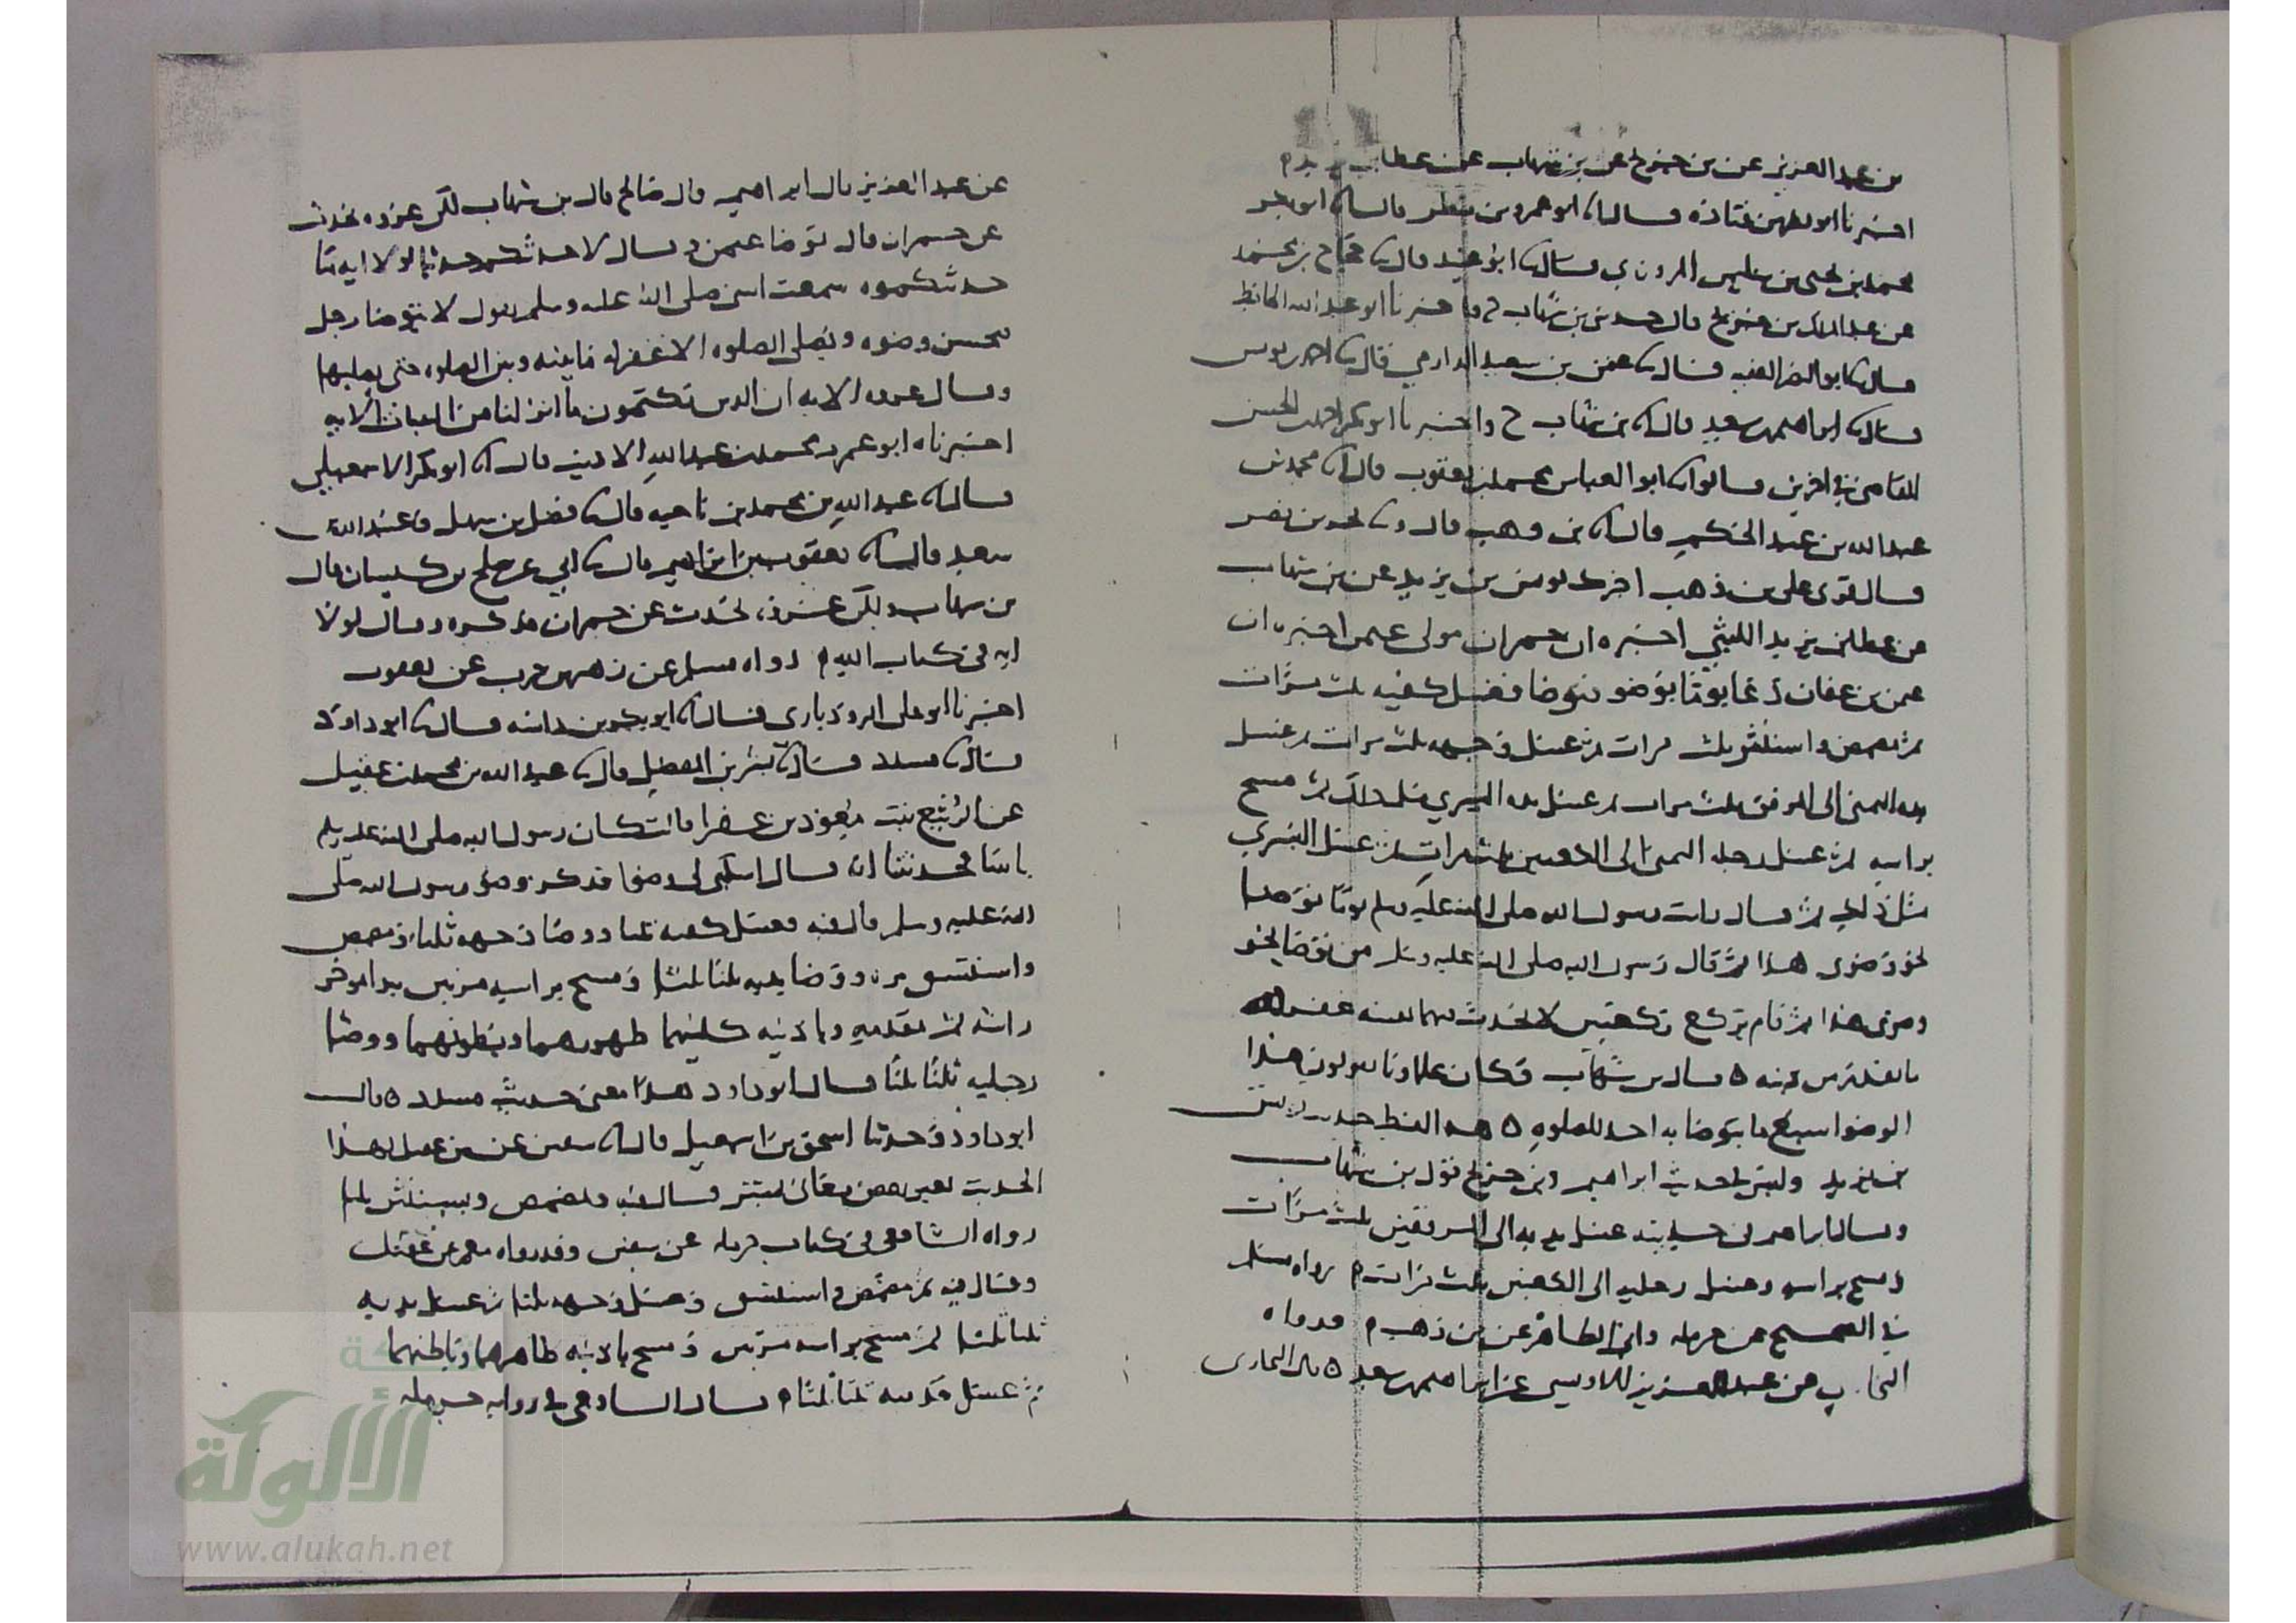 بن عبد العزيز عن بن جريج عن بن شهاب عن عطا بن يزيد
اخبرنا ابو نصر بن قتاده قال ابو عمرو بن مطر قال ابو بكر
محمد بن يحيى بن سليمن المروزي قال ابو عبيد قال حجاج بن محمد
عن عبد الملك بن جريج قال حدثني بن شهاب ح واخبرنا ابو عبد الله الحافظ
قال ابو النضر الفقيه قال عثمن بن سعيد الدارمي قال احمد بن يونس
قال ابراهيم بن سعد قال بن شهاب ح واخبرنا ابو بكر احمد بن الحسن
القاضي في اخرين قالوا ابو العباس محمد بن يعقوب قال محمد بن
عبد الله بن عبد الحكم قال بن وهب قال و بحر بن نصر
قال قرئ على بن وهب اخبرك يونس بن يزيد عن بن شهاب
عن عطا بن يزيد الليثي اخبره ان حمران مولى عثمن اخبره ان
عثمن بن عفان دعا يوما بوضوء فتوضا فغسل كفيه ثلث مرات
ثم مضمض واستنثر ثلث مرات ثم غسل وجهه ثلث مرات ثم غسل
يده اليمنى الى المرفق ثلث مرات ثم غسل يده اليسري مثل ذلك ثم مسح
براسه ثم غسل رجله اليمنى الى الكعبين ثلث مرات ثم غسل اليسري
مثل ذلك ثم قال رايت رسول الله صلى الله عليه وسلم يوما توضا
نحو وضوى هذا ثم قال رسول الله صلى الله عليه وسلم من توضا نحو
وضوى هذا ثم قام يركع ركعتين لا يحدث فيهما نفسه غفر له
ما تقدم من ذنبه ٥ قال بن شهاب وكان علماونا يقولون هذا
الوضوا اسبغ ما يتوضا به احد للصلوه ٥ هذا لفظ حديث يونس
بن يزيد وليس في حديث ابراهيم وبن جريج قول بن شهاب
وقال ابراهيم في حديثه غسل يديه الى المرفقين ثلث مرات
ومسح براسه وغسل رجليه الى الكعبين ثلث مرات م رواه مسلم
في الصحيح عن حرمله وابي الطاهر عن بن وهب م ورواه
البخاري عن عبد العزيز الاويسي عن ابراهيم بن سعد ٥ قال البخاري
عن عبد العزيز قال ابراهيم قال صالح قال بن شهاب لكن عروه يحدث
عن حمران قال توضا عثمن و قال لاحدثكم حديثا لولا ايه ما
حدثكموه سمعت النبي صلى الله عليه وسلم يقول لا يتوضا رجل
يحسن وضوه ويصلى الصلوه الا غفر له ما بينه وبين الصلوه حتى يصليها
وقال عروه الايه ان الذين يكتمون ما انزلنا من البينات الايه
اخبرناه ابو عمرو محمد بن عبد الله الاديب قال ابو بكر الاسمعيلي
قال عبد الله بن محمد بن ناجيه قال فضل بن سهل وعبيد الله بن
سعد قال يعقوب بن ابراهيم قال ابي عن صالح بن كيسان قال
بن شهاب ولكن عروه يحدث عن حمران فذكره وقال لولا
ايه في كتاب الله م رواه مسلم عن زهير بن حرب عن يعقوب
اخبرنا ابو علي الروذباري قال ابو بكر بن داسه قال ابو داود
قال مسدد قال بشر بن المفضل قال عبد الله بن محمد بن عقيل
عن الربيع بنت معوذ بن عفرا قالت كان رسول الله صلى الله عليه وسلم
ياتينا فحدثتنا انه قال اسكبي لي وضوا فذكر وضو رسول الله صلى
الله عليه وسلم قال فيه فغسل كفيه ثلثا ووضا وجهه ثلثا ومضمض
واستنشق مره ووضا يديه ثلثا ثلثا ومسح براسه مرتين يبدا بموخر
راسه ثم بمقدمه وباذنيه كلتيهما ظهورهما وبطونهما ووضا
رجليه ثلثا ثلثا قال ابو داود هذا معنى حديث مسدد ٥ قال
ابو داود وحدثنا اسحق بن اسمعيل قال سفين عن بن عقيل بهذا
الحديث يغير بعض معاني بشر قال فيه وتمضمض واستنثر ثلثا
رواه الشافعي في كتاب حرمله عن سفين وقد رواه معمر عن بن عقيل
وقال فيه ثم مضمض واستنشق وغسل وجهه ثلثا ثم غسل يديه
ثلثا ثلثا ثم مسح براسه مرتين ومسح باذنيه ظاهرهما وباطنهما
ثم غسل قدميه ثلثا ثلثا م قال الشافعي في روايه حرمله
الألوكة
www.alukah.net